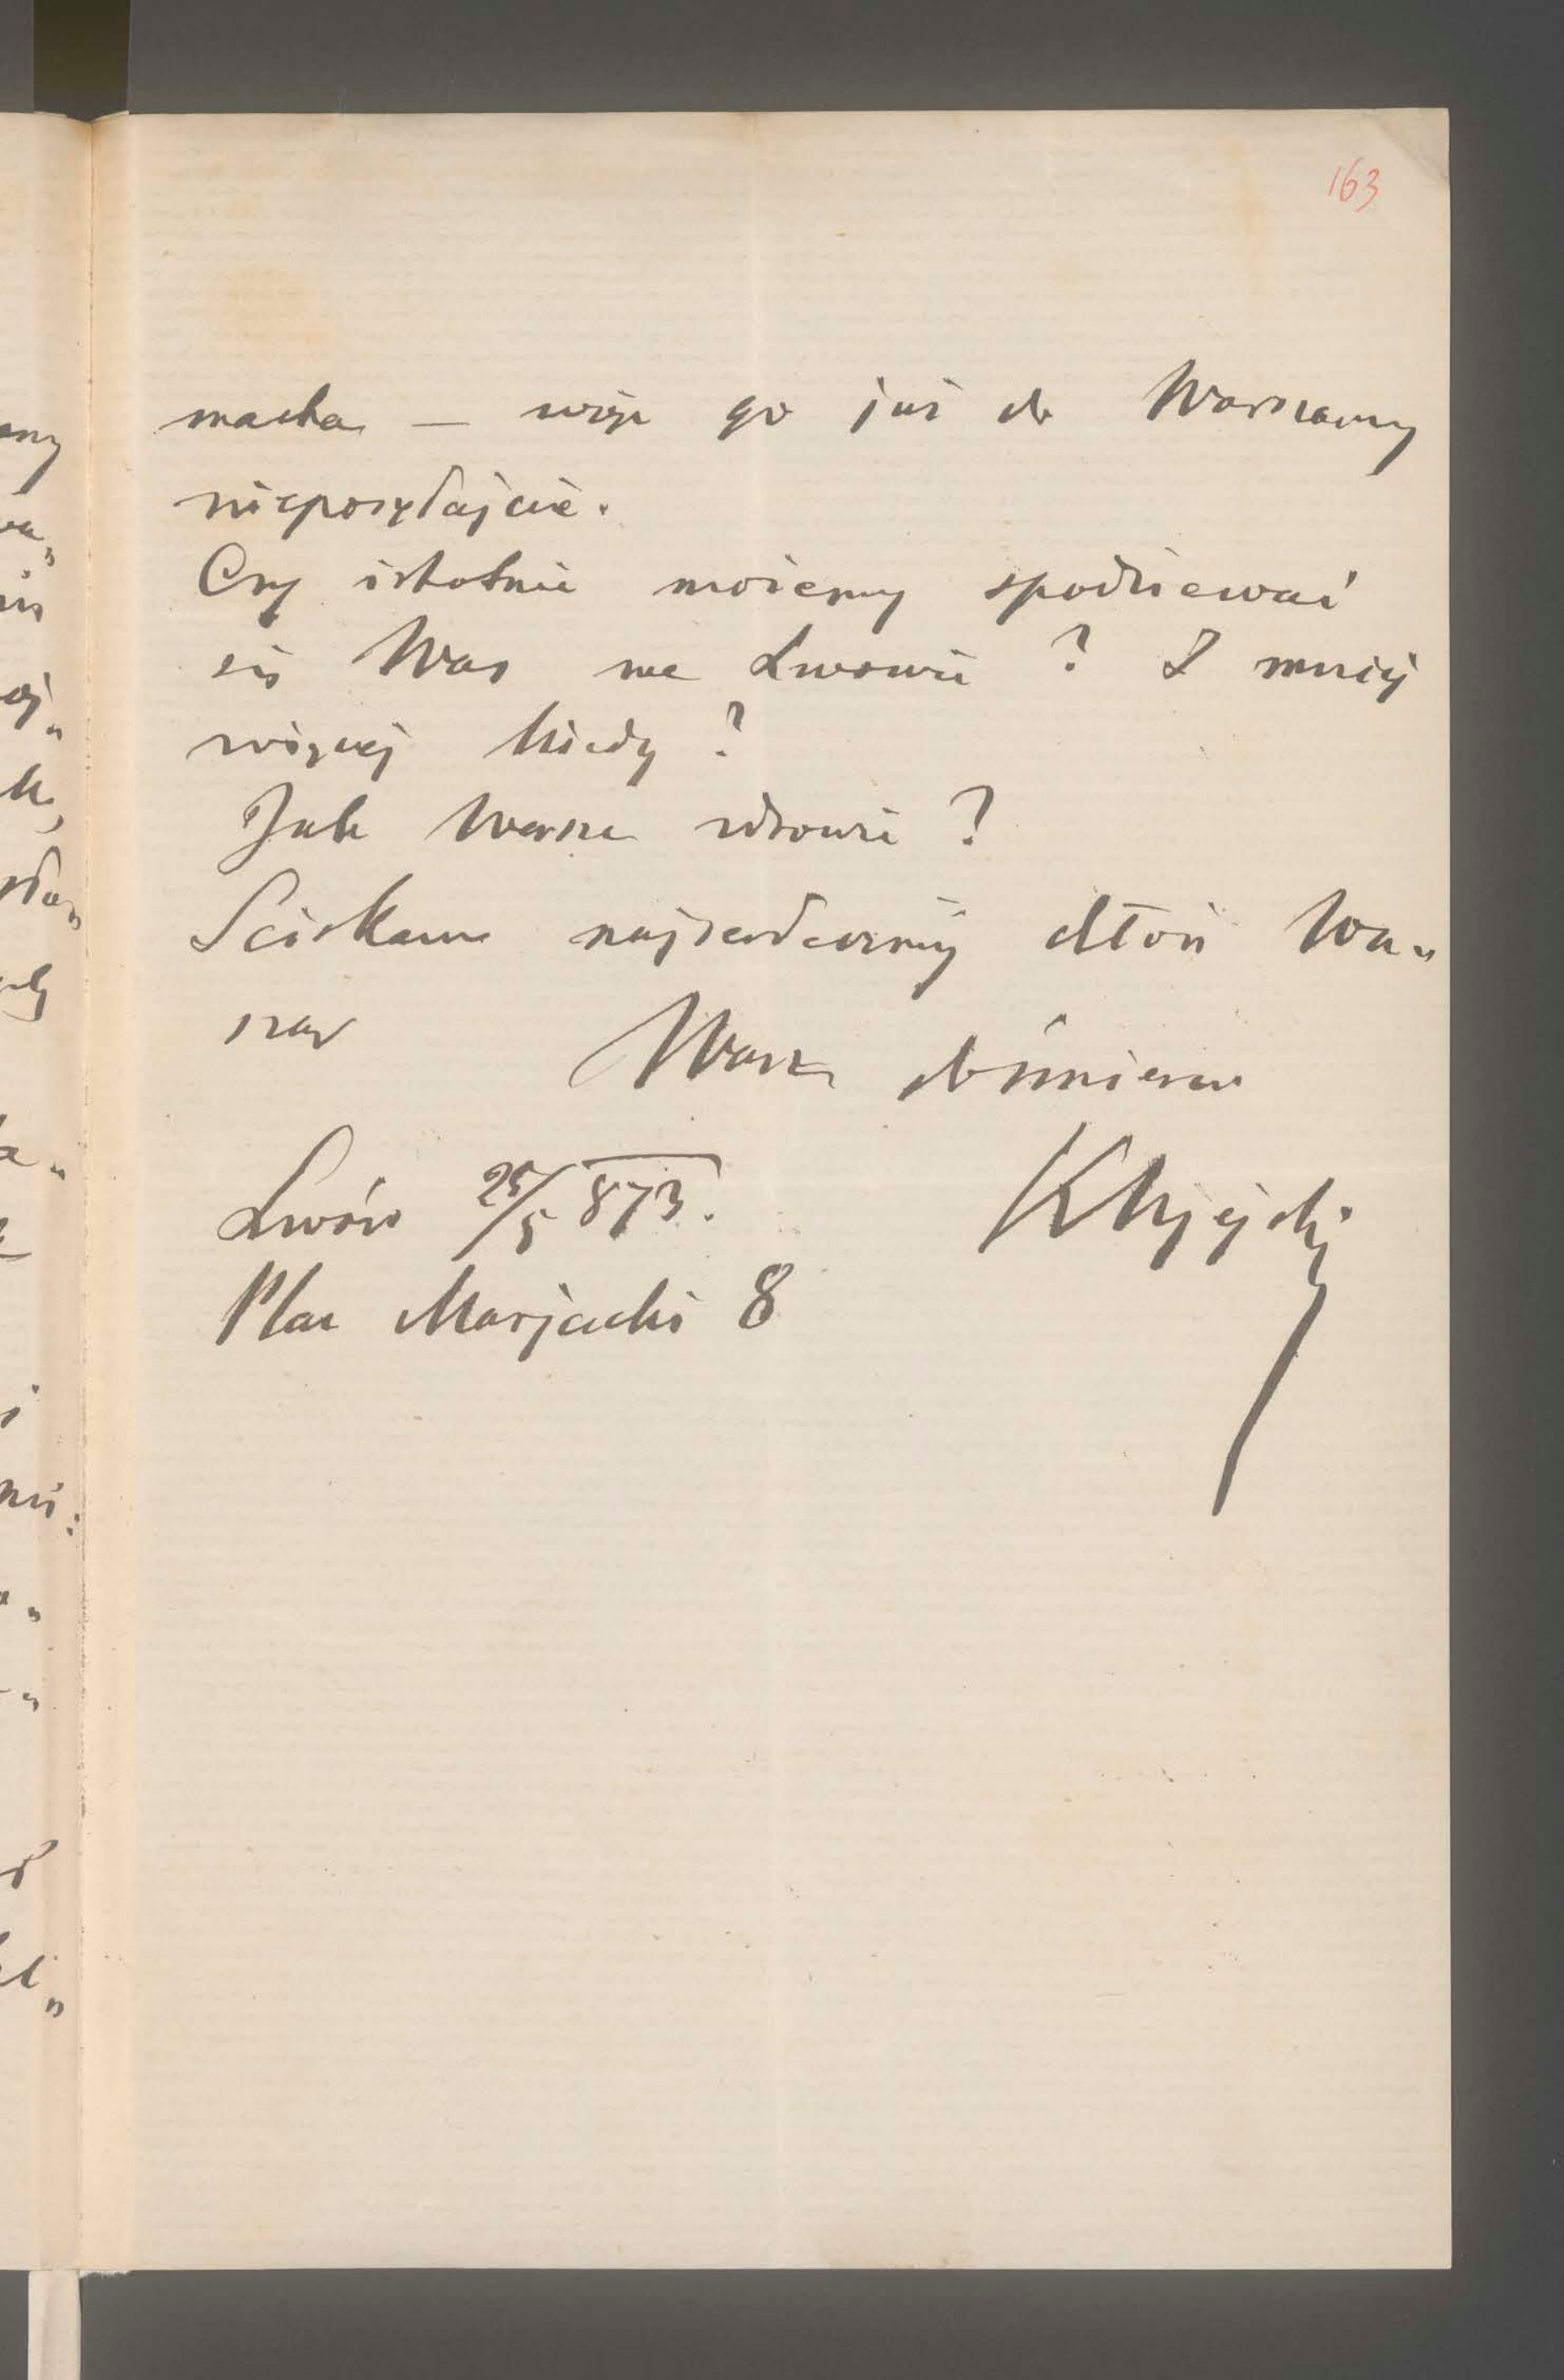 163
macka — więc go już do Warszawy
nieposyłajcie.
Czy istotnie możemy spodziewać
się Was we Lwowie? I mniej
więcej kiedy?
Jak Wasze zdrowie?
Sciskam najserdeczniej dłoń Wa„
szą
Wasz
Lwów 25/5 873.
Plac Marjacki 8